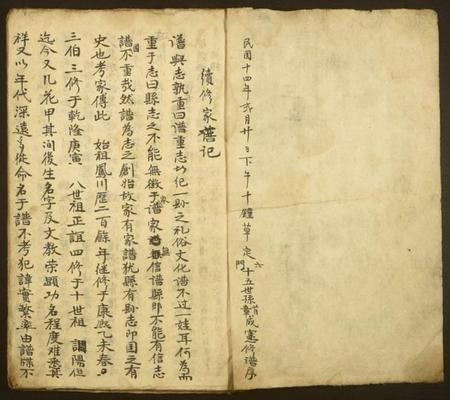 民國十四年弍月廿日下午十鐘草定
六門十五世孫成憲修譜序
續修家舊記
譜與志孰重曰譜重志以紀一縣之礼俗文化譜不過一姓耳何為而
重于志曰縣志之不能無徵于譜家無信譜縣即不能有信志
譜不重哉然譜為志之創始故家有家譜犹縣有縣志即国之有
史也考家傳此 始祖鳳川歷二百餘年継修于康熙乙未春
三伯三修于乾隆庚寅 八世祖正誼四修于十世祖 調陽但
迄今又几花甲其间後生名字及文教荣顕功名程度难悉其
祥又以年代深遠多從命名于譜不考犯諱實繁率由譜牒不